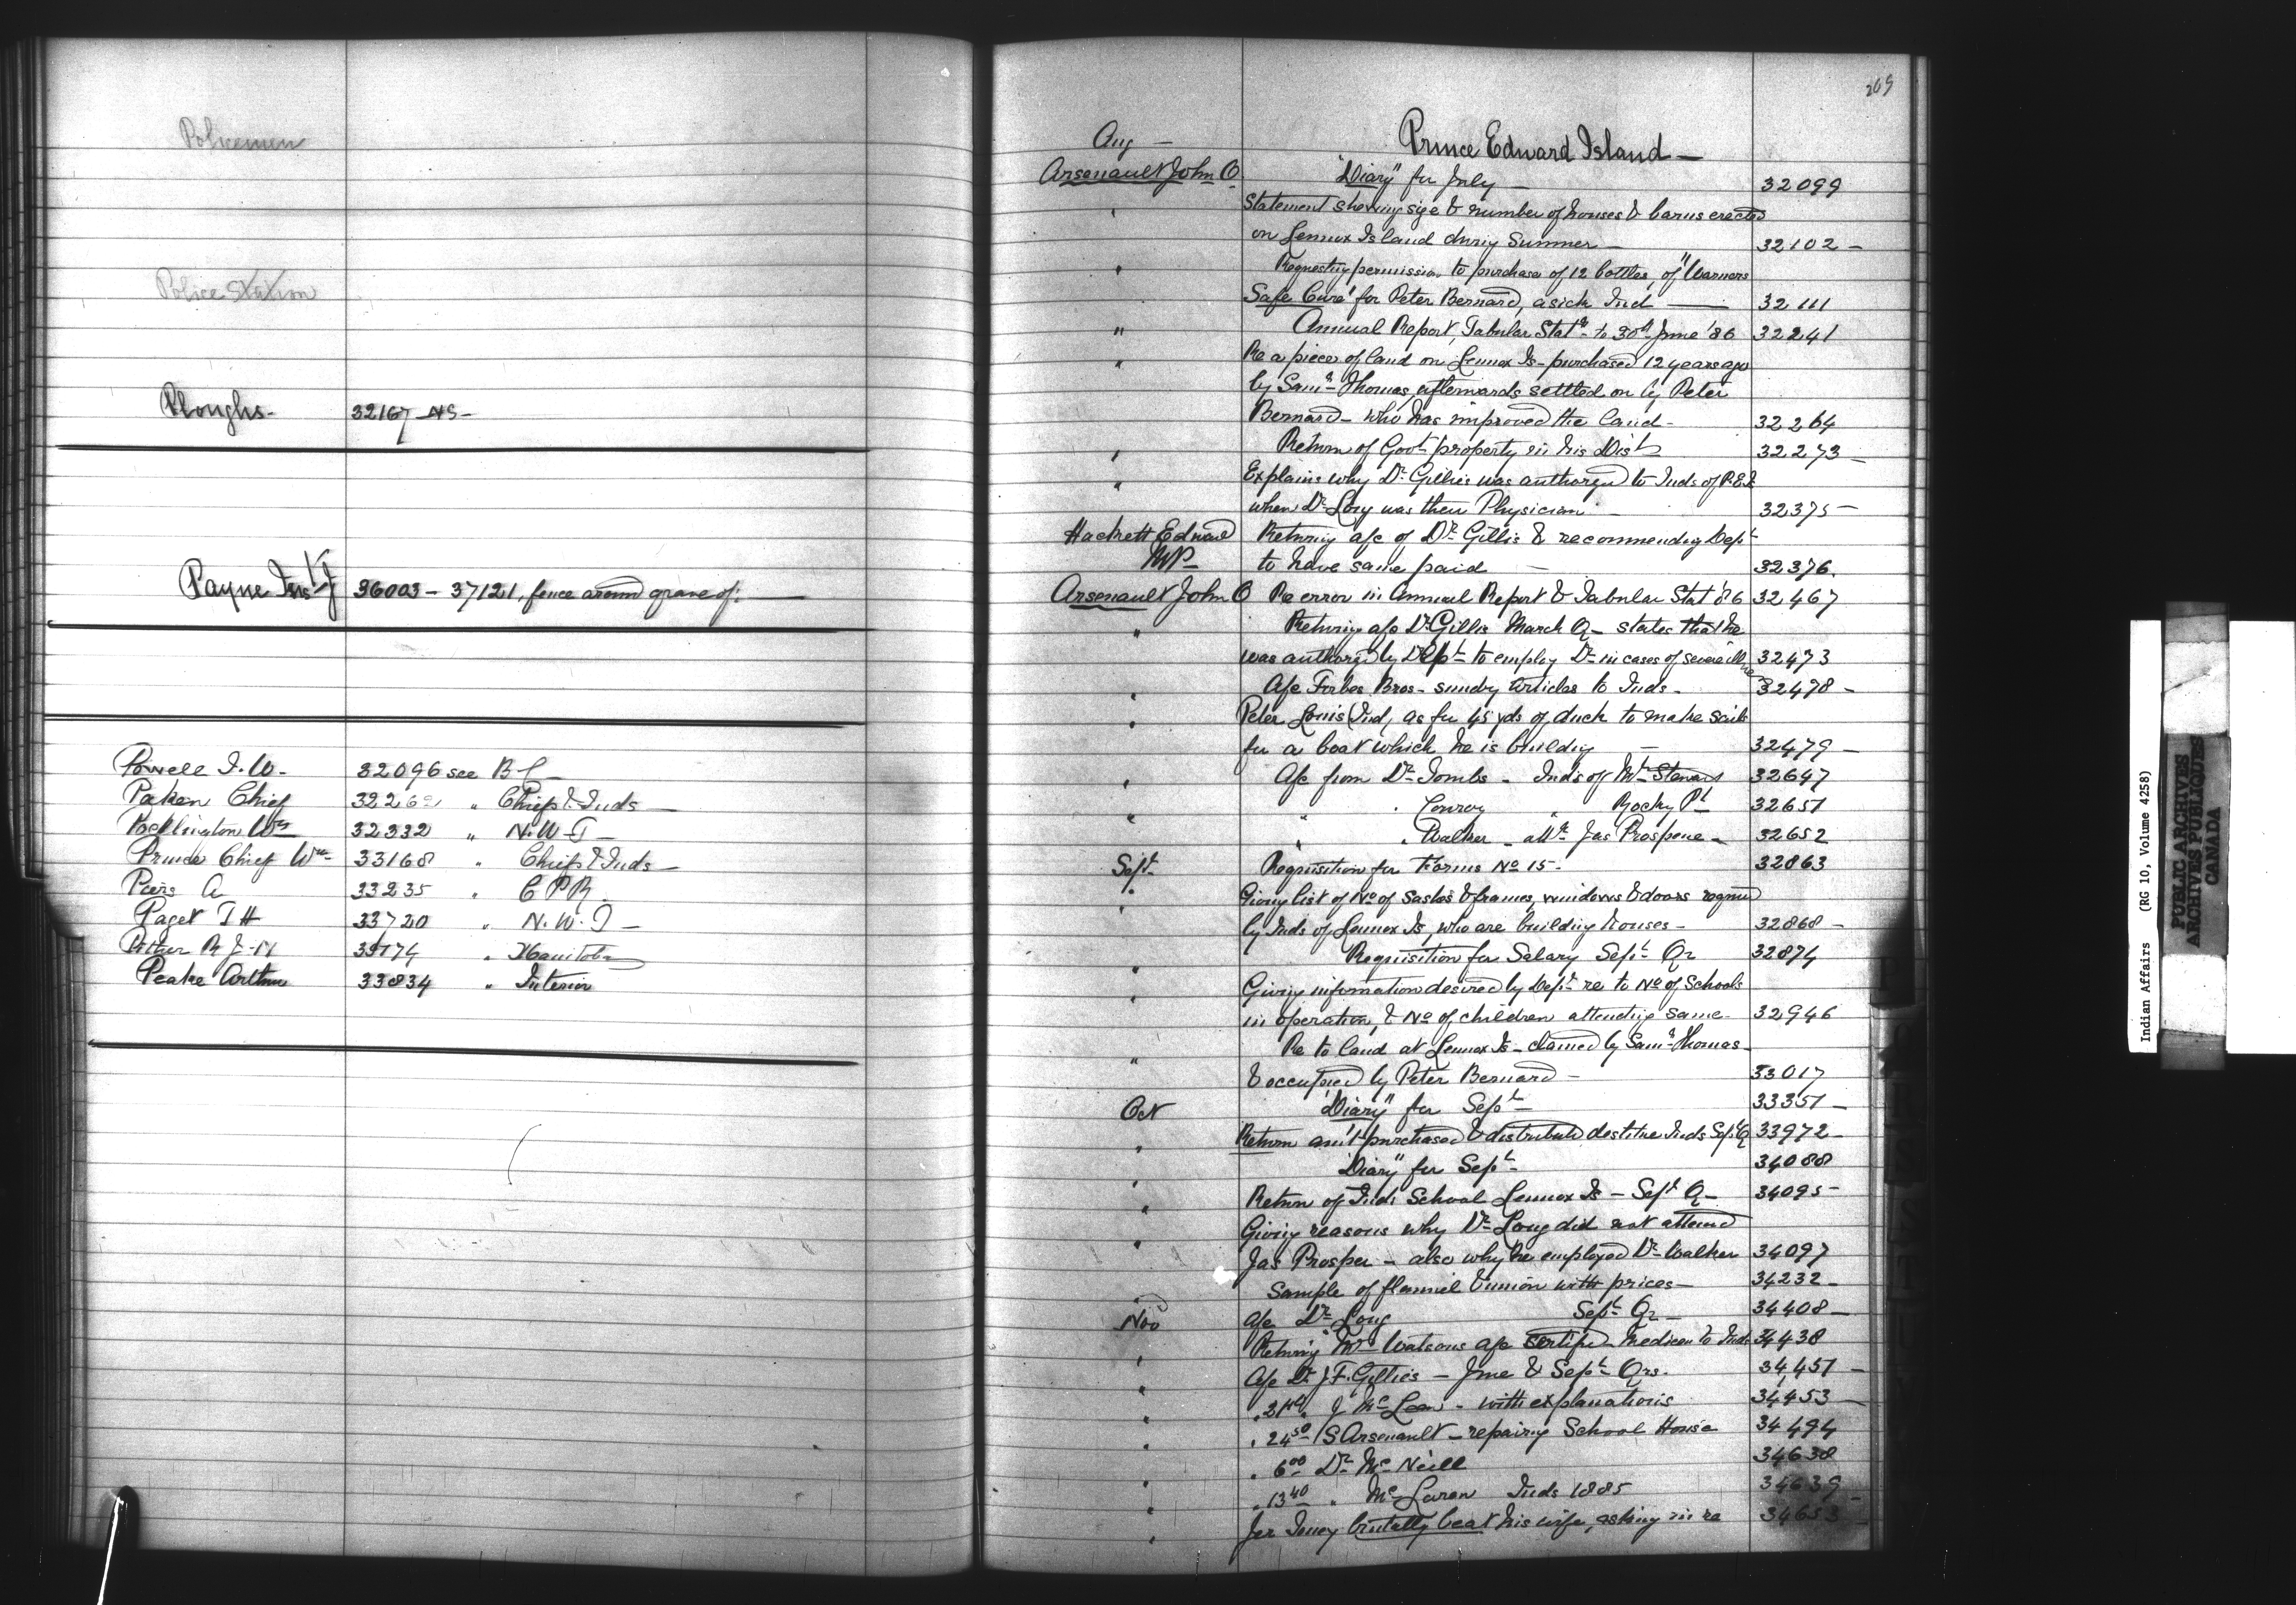 Policemen
Police Station
Ploughs - 32167 - NS -
Payne Ins J 36003 - 37121, fence around grave of:
Powell I. W. - 32096 see B C
Paken Chief 3226 " Chiefs & Inds
Pocklington Wm 32332 " N. W. T
Prince Chief Wm 33168 " Chiefs & Inds
Piers A 33235 " C P R
Paget T H 33720 " N. W. T
Pither R J. N 33174 " Manitoba
Peake Arthur 33834 " Interior
269
Aug - Prince Edward Island -
Arsenault John O "Diary" for July - 32099
" Statement shewing size & number of houses & barns erected
on Lennox Island during Summer - 32102 -
" Requesting permission to purchase of 12 bottles, of "Warners
Safe Cure" for Peter Bernard, a sick Ind - 32111
" Annual Report, Tabular Statt to 30th June '86 32241
" Re a piece of land on Lennox Is - purchased 12 years ago
by Saml Thomas, afterwards settled on by Peter
Bernard - who has improved the land - 32264
" Return of Govt property in his Dist 32273 -
" Explains why Dr. Gillies was authorized to Inds of P.E.I.
when Dr Long was their Physician - 32375 -
Hackett Edward Returning a/c of Dr Gillis & recommending Dept
MP - to have same paid - 32376.
Arsenault John O Re error in Annual Report & Tabular Stat '86 32467
" Returning a/c Dr Gillis March Qr - states that he
was authorized by Dept to employ Dr in cases of severe illness 32473
" A/c Forbes Bros - sundry articles to Inds - 32478 -
" Peter Louis (Ind) as for 45 yds of duck to make sails
for a boat which he is building - 32479 -
" A/c from Dr Tombs - Inds of Mt Stewart 32647
" " " Conroy " Rocky Pt 32651
" " Walker - att Jas Prospere - 32652
Sept - Requisition for Forms No 15 - 32863
" Giving list of No of sashes & frames, windows & doors required
by Inds of Lennox Is, who are building houses - 32868 -
" Requisition for Salary Sept Qr 32874
" Giving information desired by Dept re to No of Schools
in operation, & No of children attending same - 32946
" Re to land at Lennox Is - claimed by Saml Thomas -
& occupied by Peter Bernard - 33017
Oct "Diary" for Sept - 33351 -
" Return am't purchased & distributed destitute Inds Sept Q 33972 -
" "Diary" for Sept - 34088
" Return of Inds School Lennox Is - Sept Q - 34095 -
" Giving reasons why Dr Long did not attend
Jas Prosper - also why he employed Dr Walker 34097
Sample of flannel & union with prices - 34232 -
Nov A/c Dr Long Sept Qr - 34408 -
" Returning Mr Watsons a/c certified Medicen to Inds 34438
" A/c Dr J. F. Gillies - June & Sept Qrs. 34,451 -
" " J McLean - with explanations 34453
" " 24 50 S Arsenault - repairing School House 34494
" " 6 00 Dr McNeill 34638
" " 13 40 " McLaren Inds 1885 34639 -
" brutally beat his wife, asking in re 34653
Indian Affairs (RG 10, Volume 4258)
PUBLIC ARCHIVES
ARCHIVES PUBLIQUES
CANADA